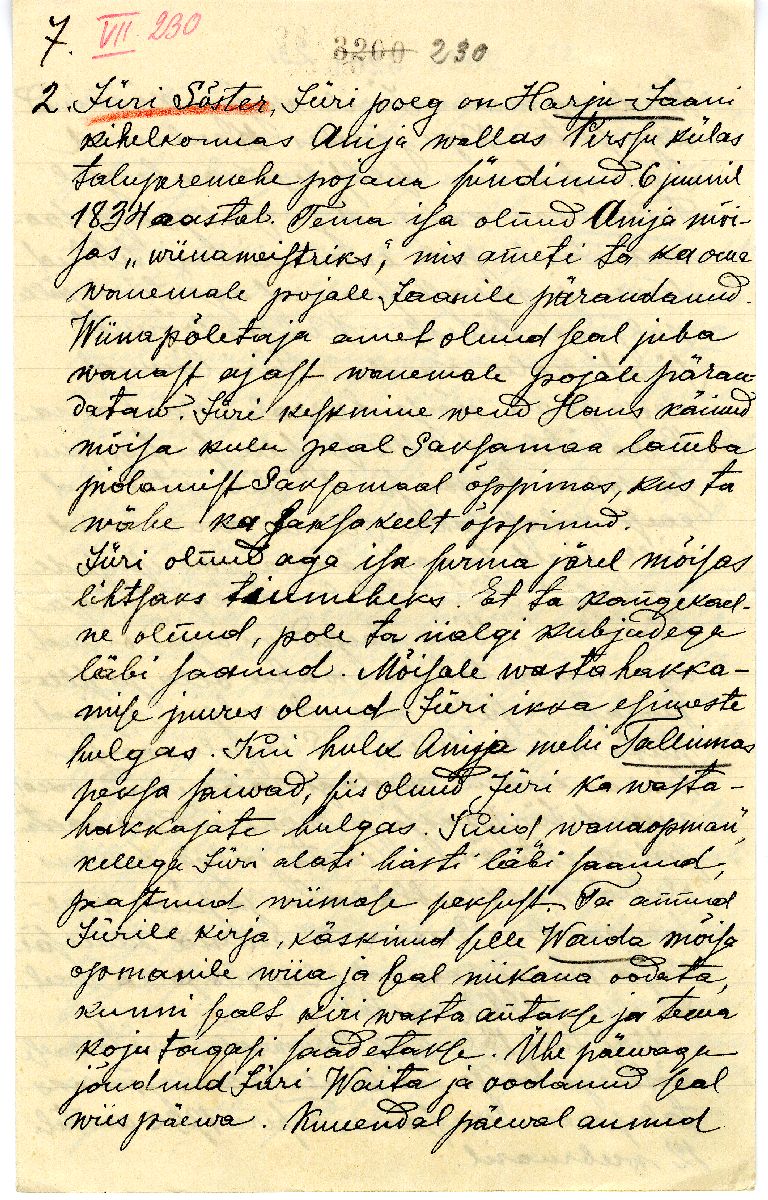 7. VII 230 3200 230
2. Jüri Söster, Jüri poeg on Harju-Jaani
kihelkonnas Anija wallas Perssu külas
taluperemehe pojana sündinud 6 juunil
1834 aastal. Tema isa olnud Anija mõi-
sas „wiinameistriks", mis ameti ta ka oma
wanemale pojale Jaanile pärandanud.
Wiinapõletaja amet olnud seal juba
wanast ajast wanemale pojale päran-
dataw. Jüri keskmine wend Hans käinud
mõisa kulu peal Saksamaa lamba
pidamist Saksamaal õppimas, kus ta
wähe ka saksakeelt õppinud.
Jüri olnud aga isa surma järel mõisas
lihtsaks teumeheks. Et ta kangekael-
ne olnud, pole ta iialgi kubjadega
läbi saanud. Mõisale wastahakka-
mise juures olnud Jüri ikka esimeste
hulgas. Kui hulk Anija mehi Tallinnas
peksa saiwad, siis olnud Jüri ka wasta-
hakkajate hulgas. Kuid wanaopman,
kellega Jüri alati hästi läbi saanud,
peastnud wiimase peksust. Ta annud
Jürile kirja, käskinud selle Waida mõisa
opmanile wiia ja seal niikaua oodata,
kunni sealt kiri wasta antakse ja tema
koju tagasi saadetakse. Ühe päewaga
jõudnud Jüri Waita ja oodanud seal
wiis päewa. Kuuendal päewal annud